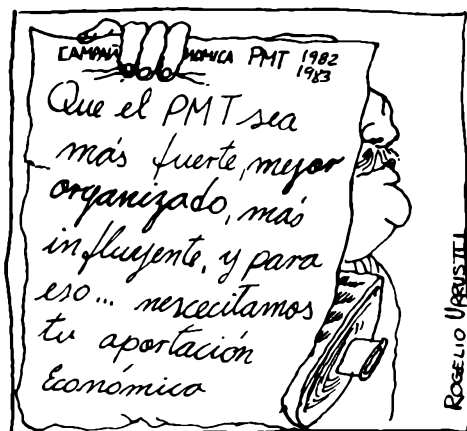 CAMPAÑ NOMICA PMT 1982
1983
Que el PMT sea
más fuerte, mejor
organizado, más
influyente, y para
eso... nescecitamos
tu aportación
Económica